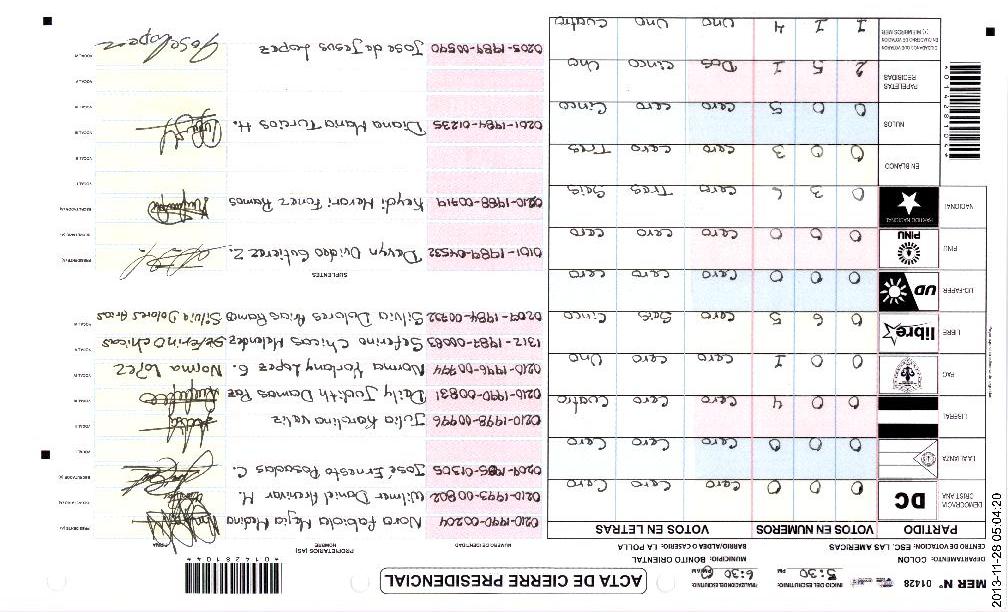 ACTA DE CIERRE PRESIDENCIAL
*01428104*
MER Nº 01428
INICIO DEL ESCRUTINIO: 5:30
FINALIZACION DEL ESCRUTINIO: 6:30
DEPARTAMENTO: COLON
MUNICIPIO: BONITO ORIENTAL
CENTRO DE VOTACION: ESC. LAS AMERICAS
BARRIO/ALDEA O CASERIO: LA POLLA
PARTIDO VOTOS EN NUMEROS VOTOS EN LETRAS
DEMOCRACIA CRISTIANA DC 0 0 0 Cero Cero Cero
LA ALIANZA 0 0 0 Cero Cero Cero
LIBERAL 0 0 4 Cero Cero Cuatro
PAC 0 0 1 Cero Cero Uno
LIBRE libre 0 6 5 Cero Seis Cinco
UD-FAPER UD 0 0 0 Cero Cero Cero
PINU PINU 0 0 0 Cero Cero Cero
NACIONAL PARTIDO NACIONAL 0 3 6 Cero Tres Seis
EN BLANCO 0 0 3 Cero Cero Tres
NULOS 0 0 5 Cero Cero Cinco
PAPELETAS RECIBIDAS 2 5 1 Dos Cinco Uno
1 1 4 Uno Uno Cuatro
NUMERO DE IDENTIDAD PROPIETARIOS (AS) NOMBRE FIRMA
0210-1990-00204 Nora Fabiola Mejia Medina PRESIDENTE (A)
0210-1993-00802 Wilmer Daniel Archivar M. SECRETARIO (A)
0209-1985-01305 José Ernesto Posadas C. ESCRUTADOR (A)
VOCAL I
0210-1998-00496 Julia Karolina Veliz
0210-1990-00831 Deily Judith Damos Paz
0210-1996-00944 Norma Yorlany Lopez G. Norma Lopez
1312-1987-00083 Seferino Chicas Melendez Seferino chicas
0209-1984-00732 Silvia Dolores Arias Ramos Silvia Dolores Arias
SUPLENTES
0101-1989-04532 Devyn Ovideo Gutierez Z. PRESIDENTE (A)
SECRETARIO (A)
0210-1988-00919 Keydi Merari Funez Ramos ESCRUTADOR (A)
0201-1984-01235 Diana Maria Turcios H.
0205-1989-00590 Jose de Jesus Lopez Jose Lopez
2013-11-28 05:04:20